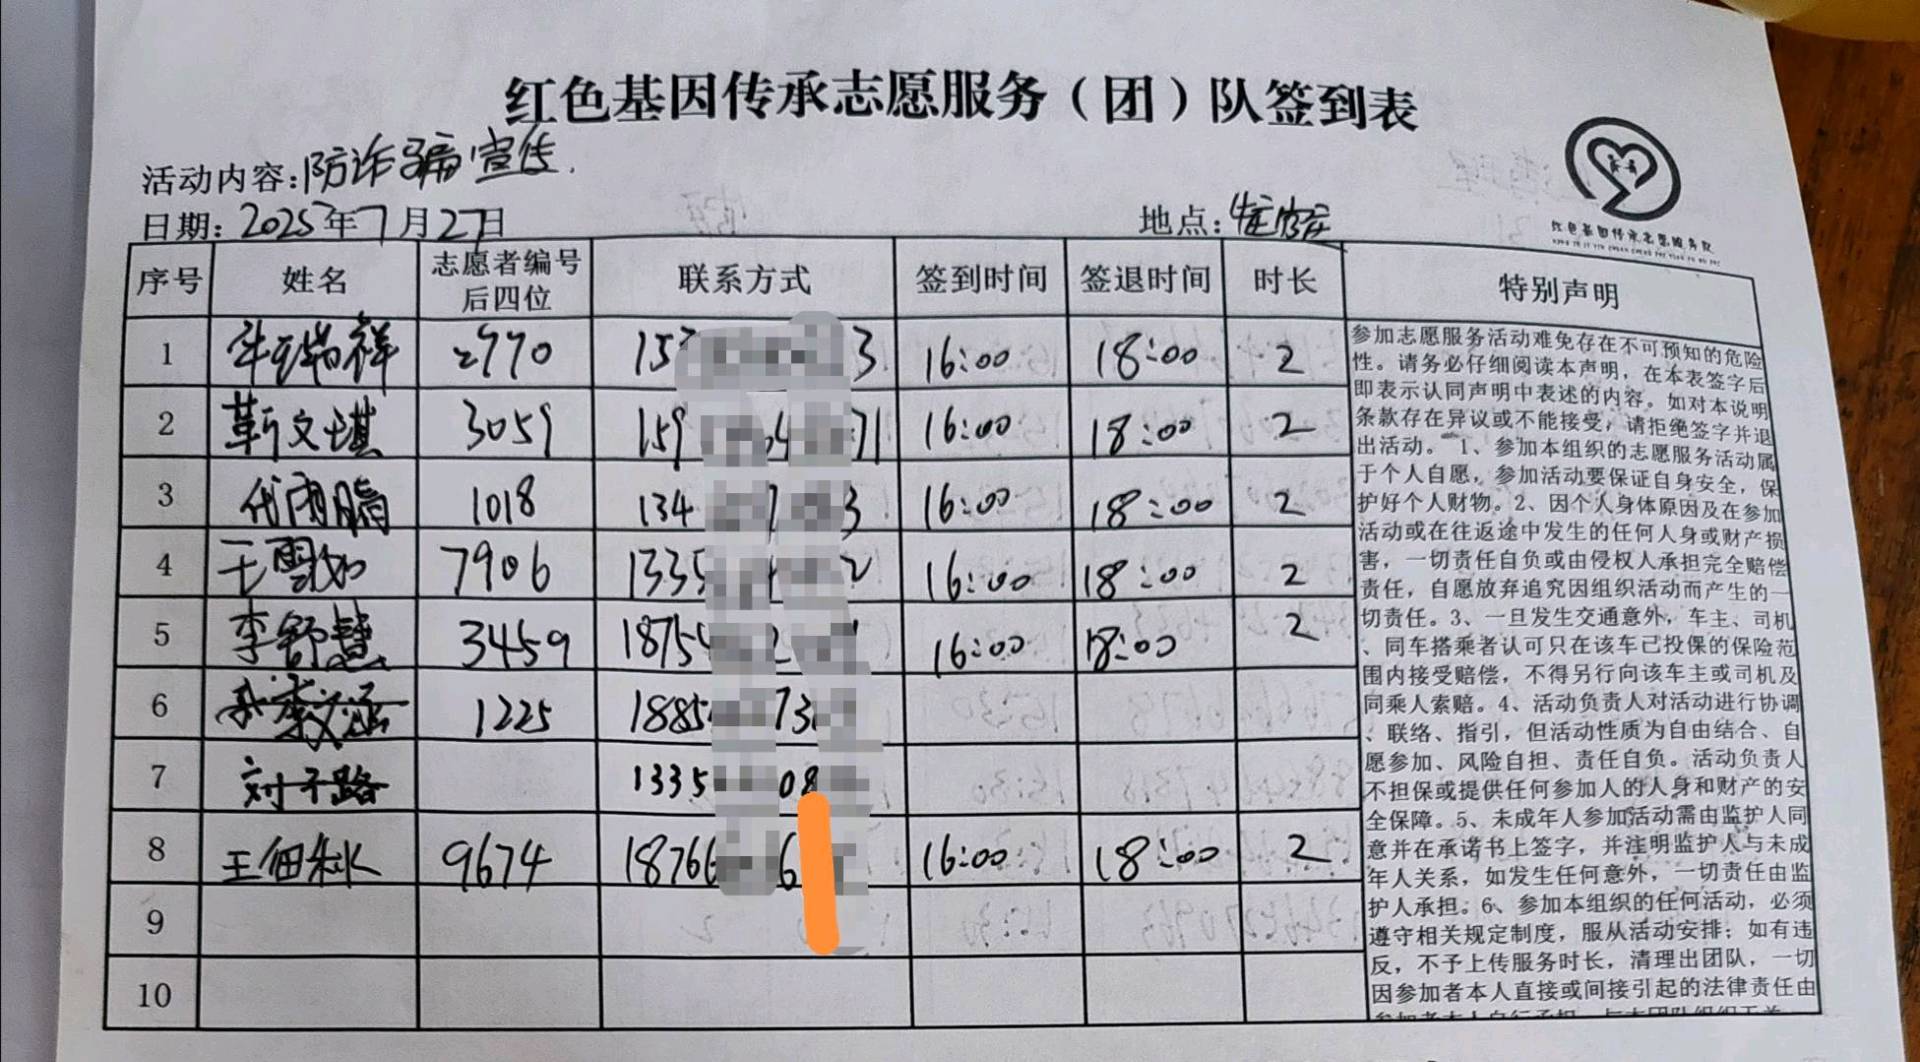 红色基因传承志愿服务（团）队签到表
活动内容:防诈骗宣传.
日期: 2025年7月27日
地点:
红色基因传承志愿服务队
序号 姓名 志愿者编号后四位 联系方式 签到时间 签退时间 时长 特别声明
1 2770 15 3 16:00 18:00 2
2 靳文琪 3059 159 71 16:00 18:00 2
3 1018 134 3 16:00 18:00 2
4 7906 1335 2 16:00 18:00 2
5 李舒慧 3459 18754 2 16:00 18:00 2
6 1225 1885 73
7 刘子路 1335 08
8 9674 18766 6 16:00 18:00 2
9
10
参加志愿服务活动难免存在不可预知的危险
性。请务必仔细阅读本声明，在本表签字后
即表示认同声明中表述的内容。如对本说明
条款存在异议或不能接受，请拒绝签字并退
出活动。 1、参加本组织的志愿服务活动属
于个人自愿，参加活动要保证自身安全，保
护好个人财物。2、因个人身体原因及在参加
活动或在往返途中发生的任何人身或财产损
害，一切责任自负或由侵权人承担完全赔偿
责任，自愿放弃追究因组织活动而产生的一
切责任。3、一旦发生交通意外，车主、司机
、同车搭乘者认可只在该车已投保的保险范
围内接受赔偿，不得另行向该车主或司机及
同乘人索赔。4、活动负责人对活动进行协调
、联络、指引，但活动性质为自由结合、自
愿参加、风险自担、责任自负。活动负责人
不担保或提供任何参加人的人身和财产的安
全保障。5、未成年人参加活动需由监护人同
意并在承诺书上签字，并注明监护人与未成
年人关系，如发生任何意外，一切责任由监
护人承担。6、参加本组织的任何活动，必须
遵守相关规定制度，服从活动安排；如有违
反，不予上传服务时长，清理出团队，一切
因参加者本人直接或间接引起的法律责任由